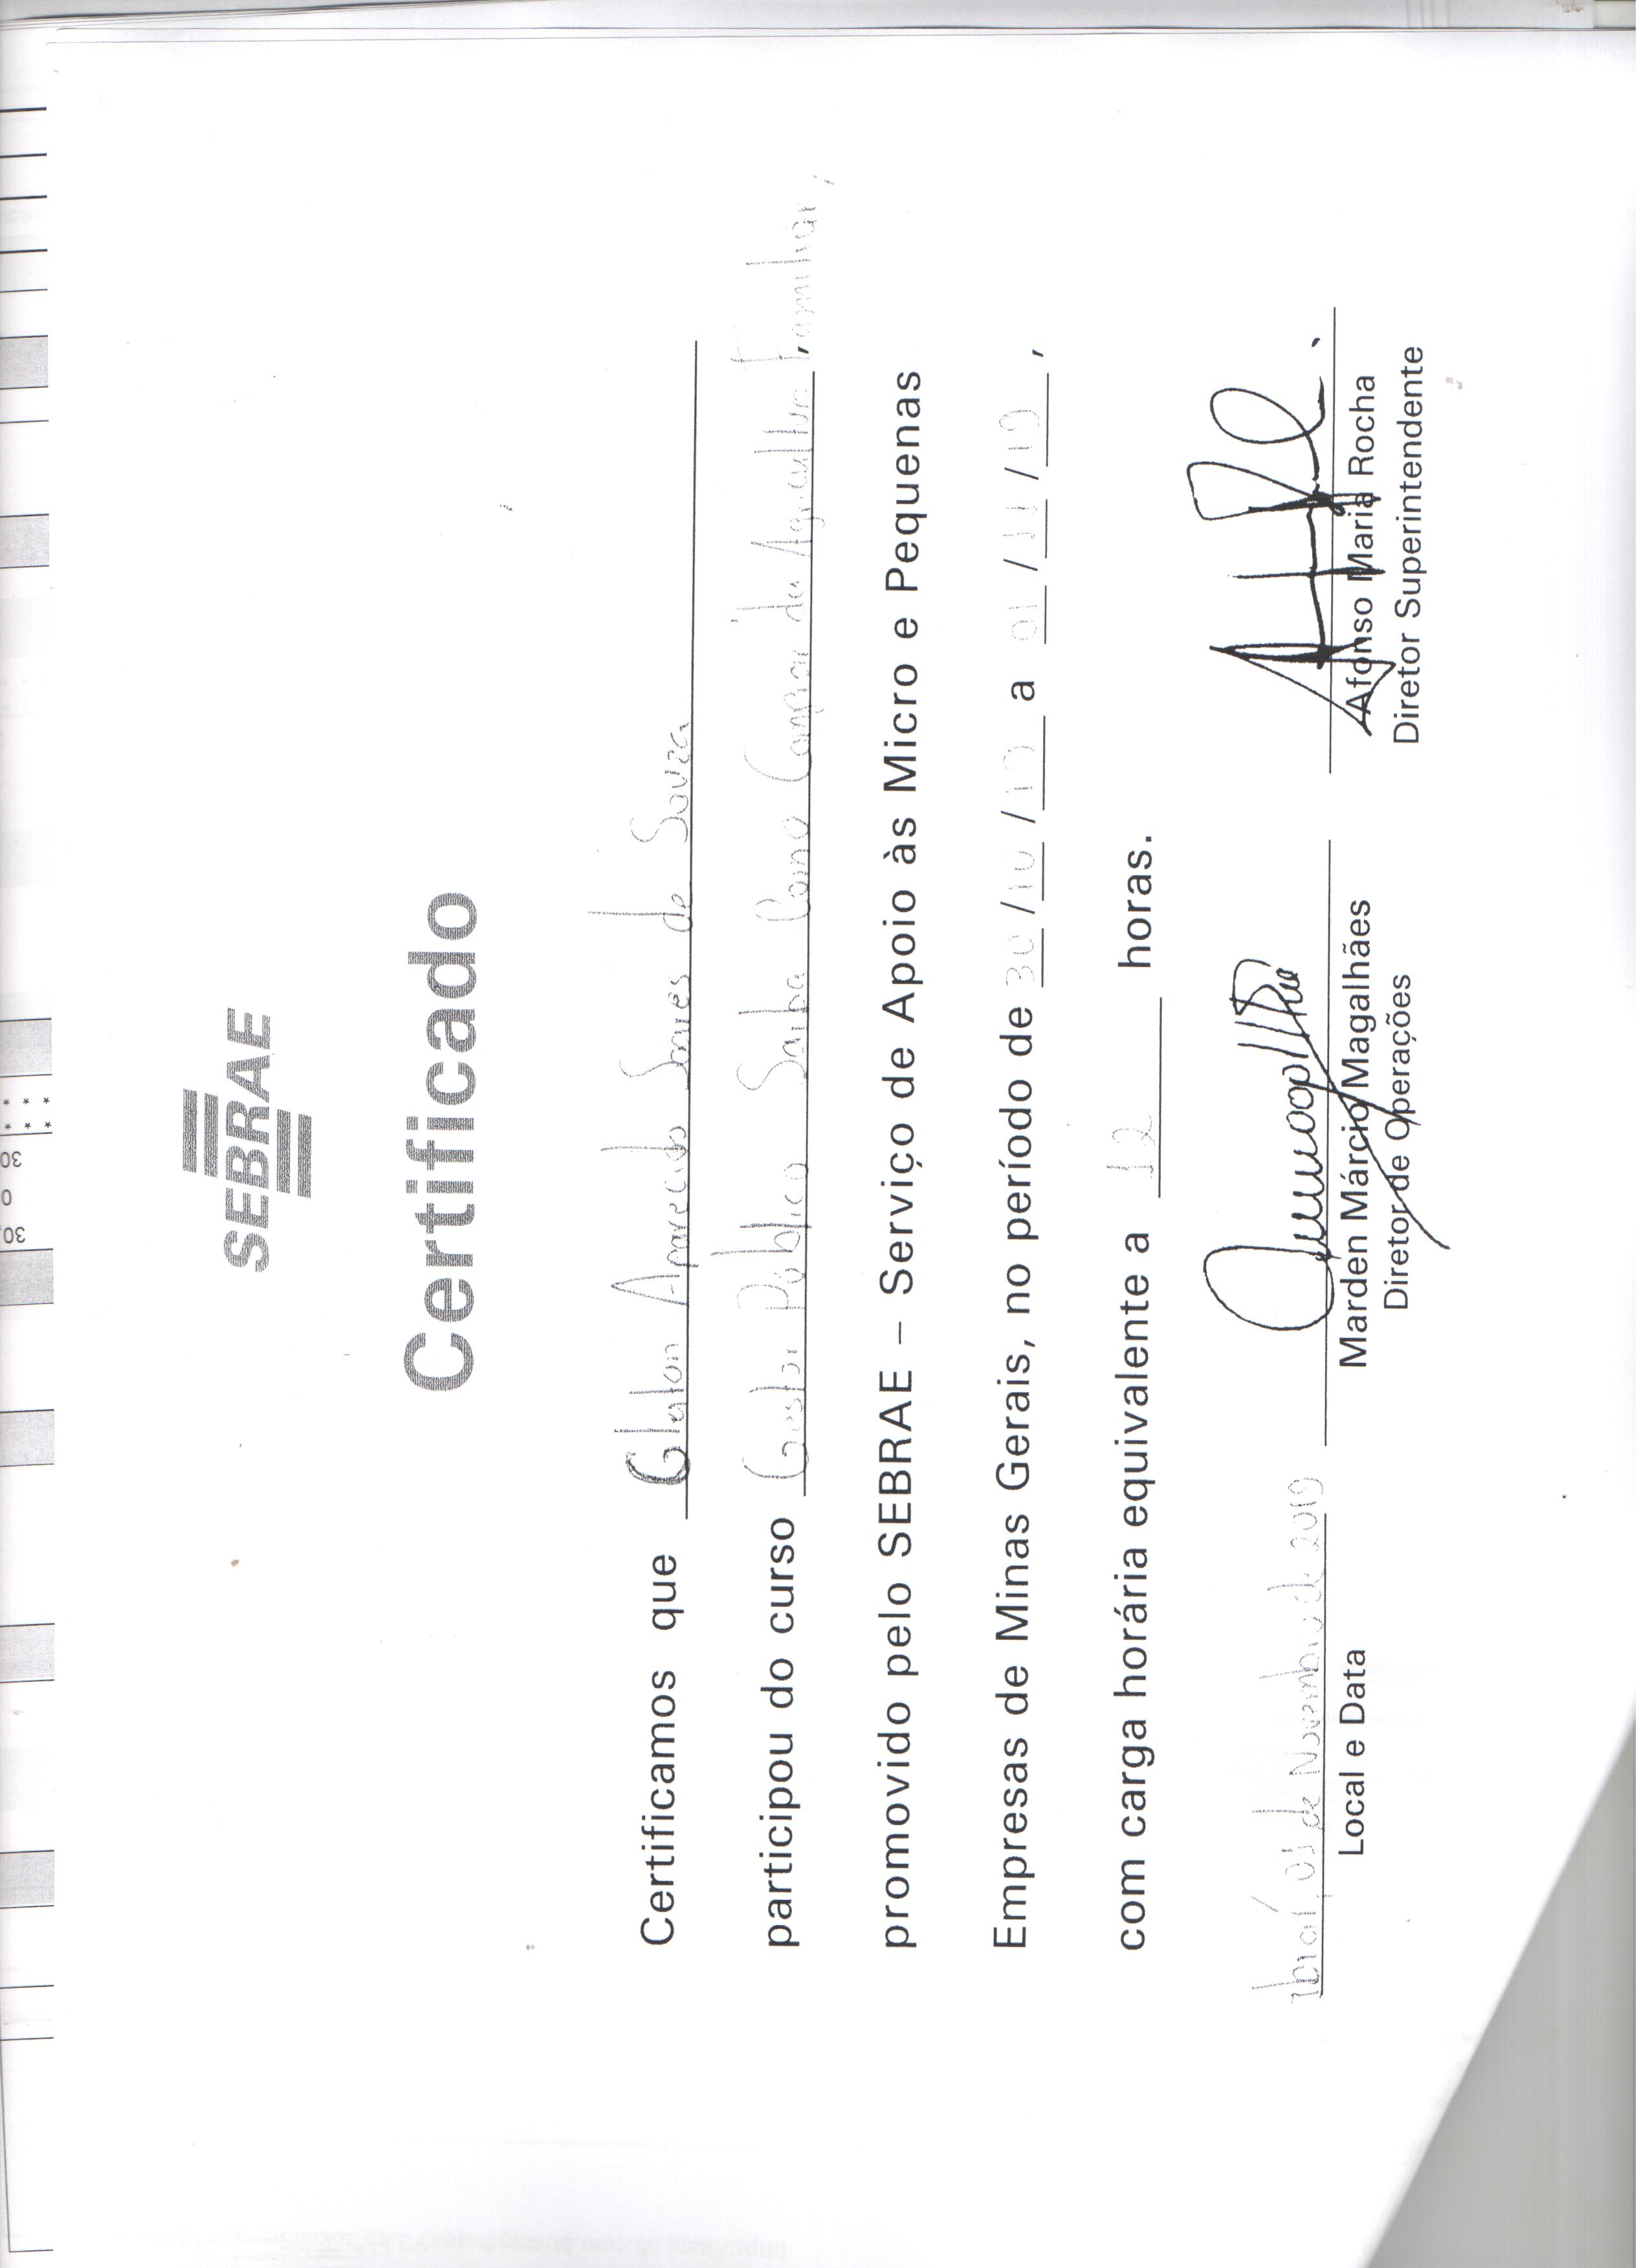 30
0
30
* * *
* * *
SEBRAE
Certificado
Certificamos que Glaton Aparecido Soares de Souza
participou do curso Gestor Público Saiba Como Comprar da Agricultura Familiar,
promovido pelo SEBRAE – Serviço de Apoio às Micro e Pequenas
Empresas de Minas Gerais, no período de 30 / 10 / 19 a 01 / 11 / 19 ,
com carga horária equivalente a 12 horas.
Ibiaí, 01 de Novembro de 2019
Local e Data
Marden Márcio Magalhães
Diretor de Operações
Afonso Maria Rocha
Diretor Superintendente